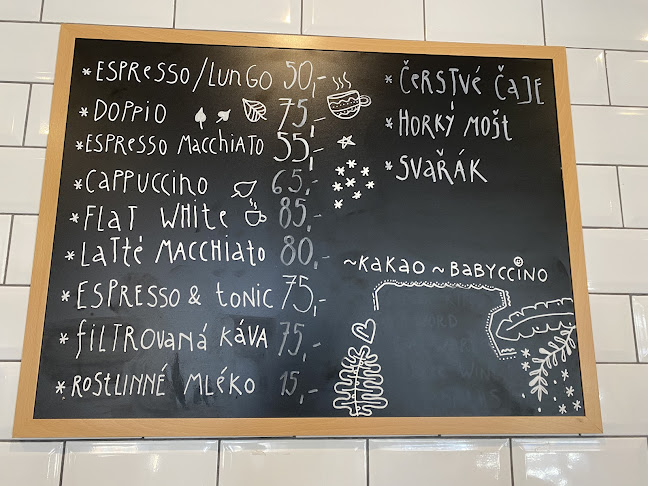 * ESPRESSO/LUNGO 50,-
* DOPPIO 75,-
* ESPRESSO MACCHIATO 55,-
* CAPPUCCINO 65,-
* FLAT WHITE 85,-
* LATTÉ MACCHIATO 80,-
* ESPRESSO & TONIC 75,-
* FILTROVANÁ KÁVA 75,-
* ROSTLINNÉ MLÉKO 15,-
* ČERSTVÉ ČAJE
* HORKÝ MOŠT
* SVAŘÁK
~KAKAO ~BABYCCINO